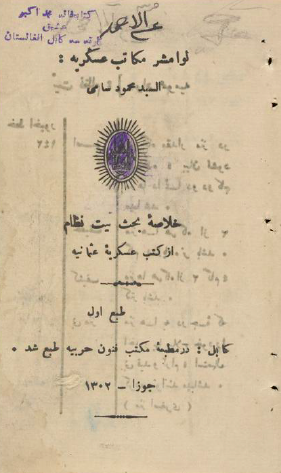 کتابخانه محمد اکبر
عشیق
کابل افغانستان
لوامشر مکاتب عسکریه :
السید محمود سامی
خلاصهٔ بحث تیت نظام
از کتب عسکریهٔ عثمانیه
طبع اول
کابل : در مطبعهٔ مکتب فنون حربیه طبع شد ٠
جوزا – ١٣٠٢